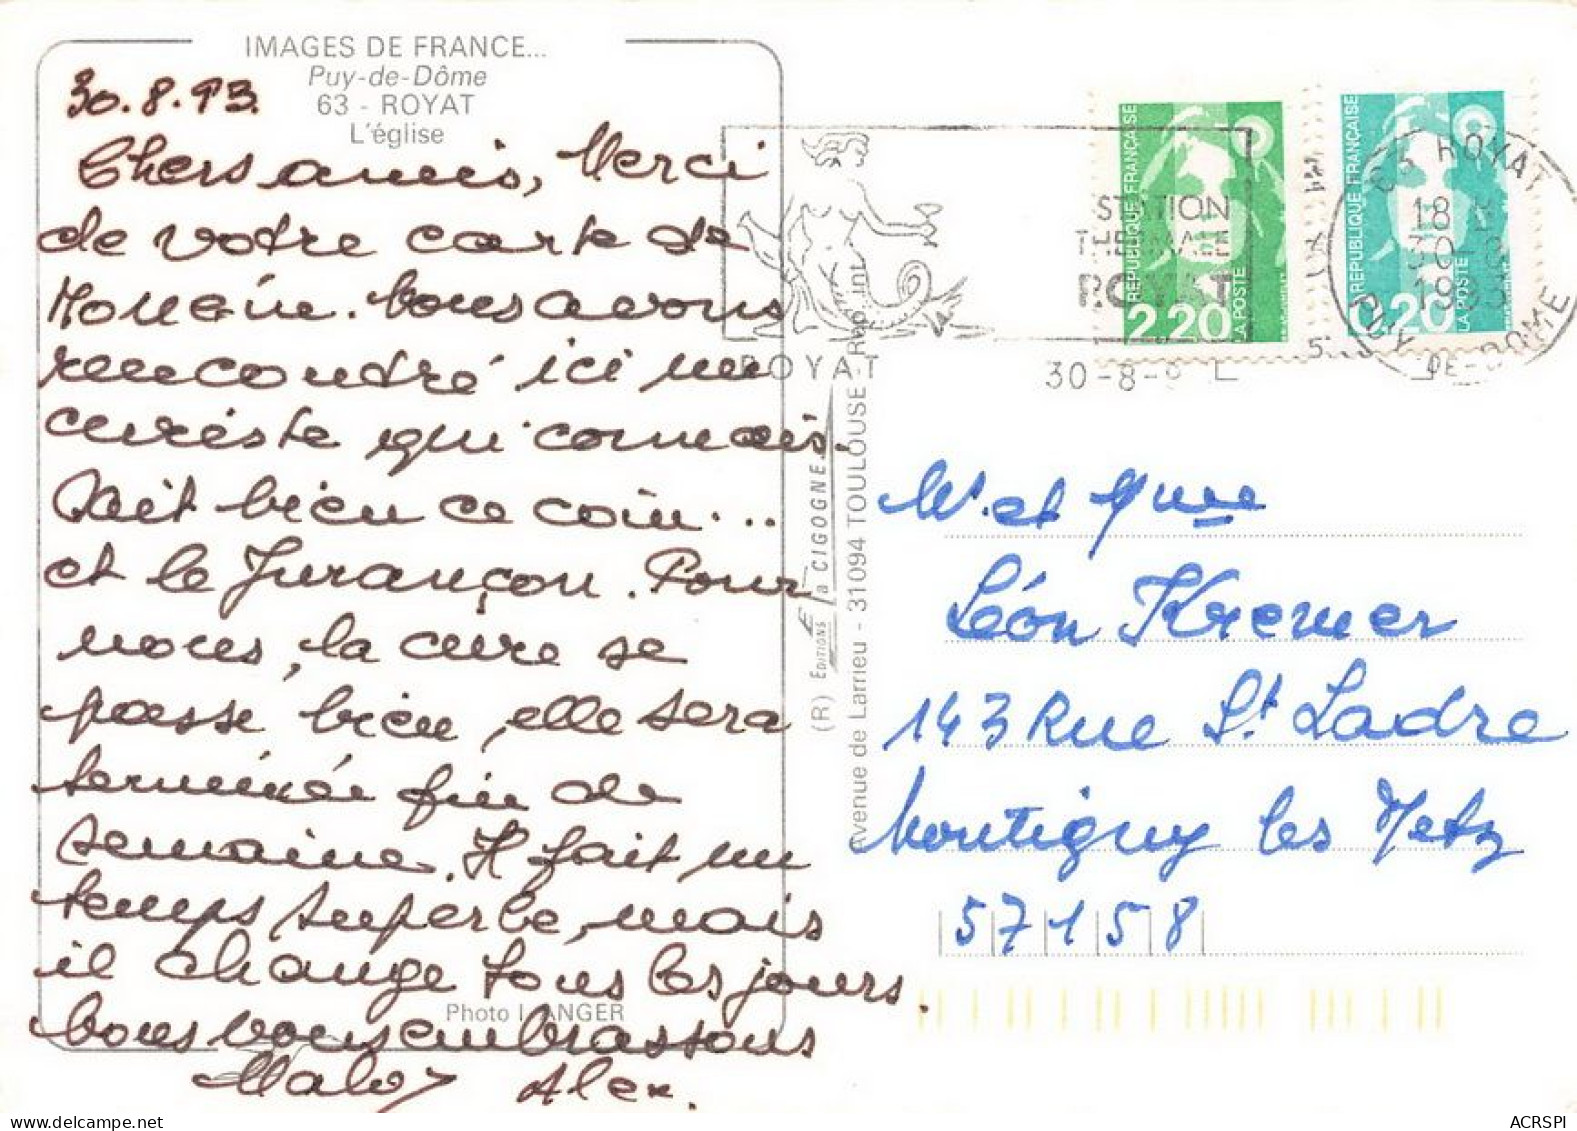 IMAGES DE FRANCE...
Puy-de-Dôme
63 - ROYAT
L'église
30.8.93.
Chers amis, Merci
de votre carte de
Nous avons
rencontré ici un
curiste qui connais-
sait bien ce coin...
et le Jurançon. Pour
nous, la cure se
passe bien, elle sera
terminée fin de
semaine. Il fait un
temps superbe, mais
il change tous les jours.
Nous vous embrassons
Alex.
Photo L. ANGER
(R) EDITIONS La CIGOGNE
Avenue de Larrieu - 31094 TOULOUSE - Rep. int.
ROYAT
STATION
THERMALE
ROYAT
30-8-9
RÉPUBLIQUE FRANÇAISE
2,20
LA POSTE
RÉPUBLIQUE FRANÇAISE
0,20
LA POSTE
63 ROYAT
18 H
30-8
1993
PUY-DE-DOME
M. et Mme
Léon Kremer
143 Rue St Ladre
Montigny les Metz
57158
ACRSPI